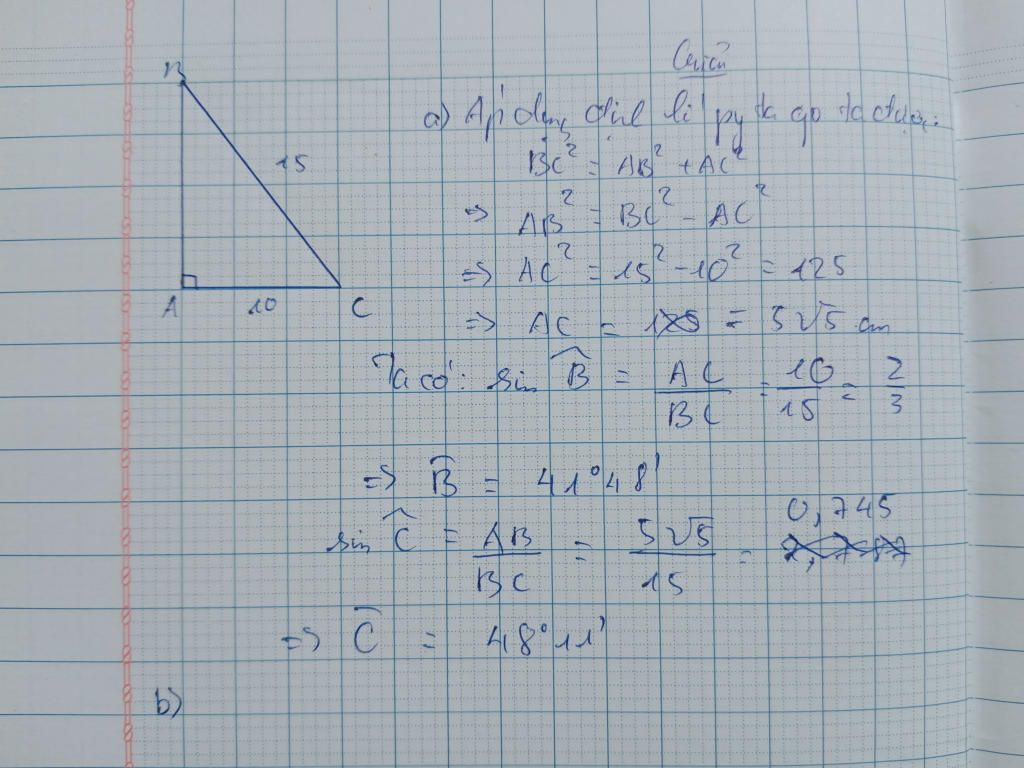 Giải
B
15
A 10 C
a) Áp dụng định lí pytago ta được:
BC² = AB² + AC²
=> AB² = BC² - AC²
=> AC² = 15² - 10² = 125
=> AC = = 5√5 cm
Ta có: sin B̂ = AC/BC = 10/15 = 2/3
=> B̂ = 41°48'
sin Ĉ = AB/BC = 5√5/15 = 0,745
=> Ĉ = 48°11'
b)